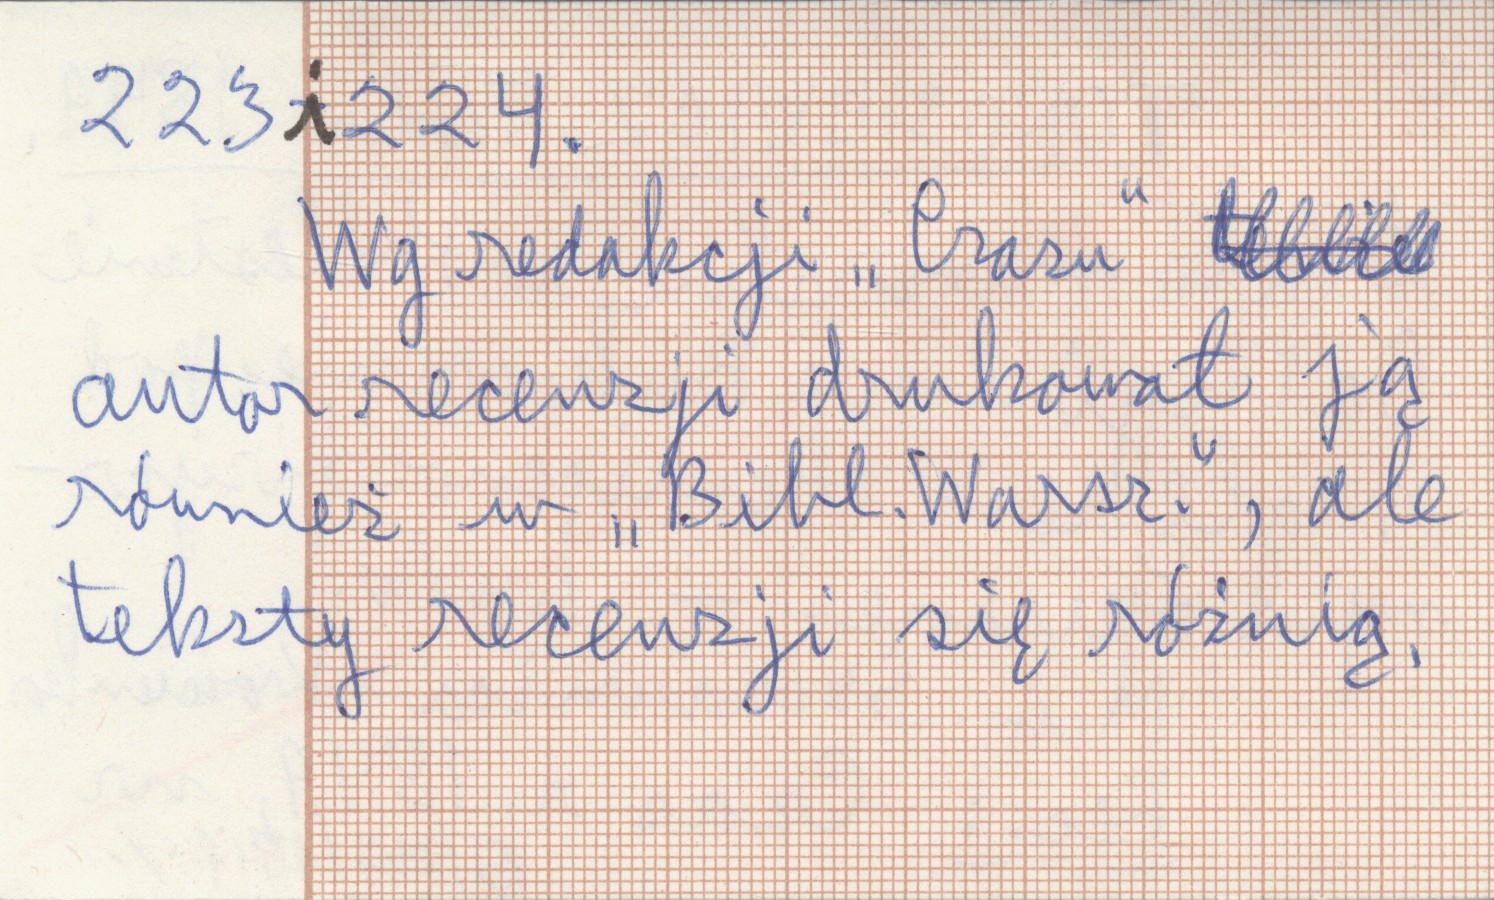 223 i 224.
Wg redakcji „Czasu"
autor recenzji drukował ją
również w „Bibl. Warsz.", ale
teksty recenzji się różnią.